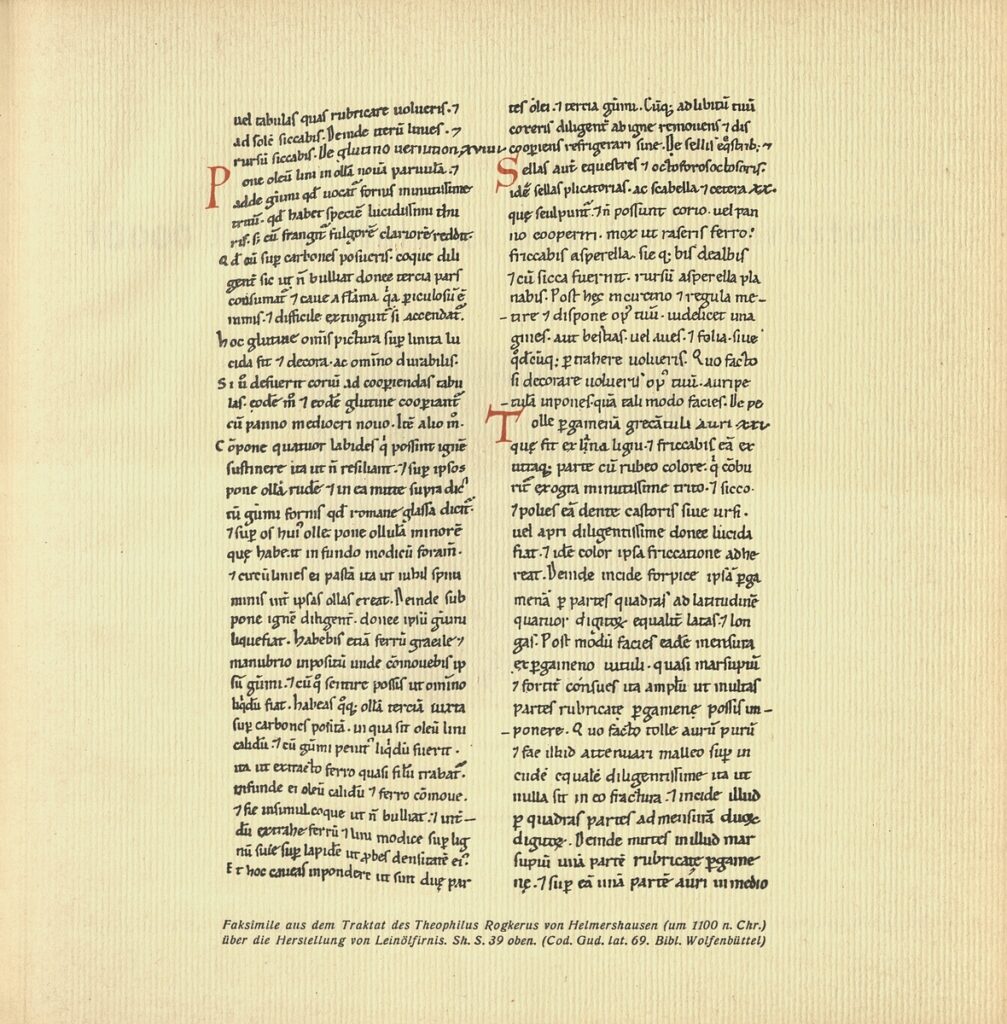 uel tabulas quas rubricare uolueris. ⁊
ad solē siccabis. Deinde iterū linies. ⁊
rursū siccabis. De glutino uernition. xxviii
Pone oleū lini in ollā nouā paruulā. ⁊
adde gūmi qd̄ uocat̄ fornis minutissime
tritū. qd̄ habet speciē lucidissimi thu
ris. s; cū frangit̄ fulgorē clariorē reddit.
Qd̄ cū sup̄ carbones posueris. coque dili
gent̄ sic ut n̄ bulliat donec tercia pars
consumat̄ ⁊ caue a flāma. q̇a p̱iculosū ē
nimis. ⁊ difficile extinguit̄ si accendat̄.
hoc glutine om̄is pictura sup̄ linita lu
cida fit ⁊ decora. ac om̄ino durabilis.
Si ū defuerit coriū ad cooperiendas tabu
las. eodē m̊ ⁊ eodē glutine cooperiant̄
cū panno mediocri nouo. Itē alio m̊.
Cōpone quatuor lapides q̇ possint ignē
sustinere ita ut n̄ resiliant. ⁊ sup̄ ipsos
pone ollā rudē ⁊ in ea mitte supra dic̄
tū gūmi fornis qd̄ romane glassa dicit̄.
⁊ sup̄ os hui᾽ olle pone ollulā minorē
quę habeat in fundo modicū foram̄.
⁊ circūlinies ei pastā ita ut nihil spiri
minis int̄ ipsas ollas exeat. Deinde sub
pone ignē diligent̄. donec ipsū gūmi
liquefiat. habebis etiā ferrū gracile ⁊
manubrio inpositū unde cōmouebis ip
sū gūmi. ⁊ cū q̊ sentire possis ut om̄ino
liq̇dū fiat. habeas q̊q; ollā terciā iuxta
sup̄ carbones positā. in qua sit oleū lini
calidū. ⁊ cū gūmi penit᾽ liq̇dū fuerit.
ita ut extracto ferro quasi filū trahat̄.
infunde ei oleū calidū ⁊ ferro cōmoue.
⁊ sic insimul coque ut n̄ bulliat. ⁊ int̄–
dū extrahe ferrū ⁊ lini modice sup̄ lig
nū siue sup̄ lapidē ut p̱bes densitatē ei᾽.
Et hoc caueas inpondere ut sint duę par
tes olei. ⁊ tercia gūmi. Cūq; ad libitū tuū
coxeris diligent̄ ab igne remouens ⁊ dis
coop̱iens refrigerari sine. De sellis eq̄strib; ⁊
Sellas aut̄ equestres ⁊ octoforos octoforis.
idē sellas plicatorias. ac scabella ⁊ cetera xx.
quę sculpunt̄. ⁊ n̄ possunt corio. uel pan
no cooperiri. mox ut raseris ferro.
friccabis asperella. sic q; bis dealbis
⁊ cū sicca fuerint. rursū asperella pla
nabis. Post hęc in circino ⁊ regula me–
–tire ⁊ dispone op᾽ tuū. uidelicet ima
gines. aut bestias. uel aues. ⁊ folia. siue
q̊dcūq; p̱trahere uolueris. Quo facto
si decorare uolueris op᾽ tuū. auri pe
–tulā inpones. quā tali modo facies. De pe
Tolle p̱gamenā grecā tula auri xxv
quę fit ex lina ligni. ⁊ friccabis eā ex
utraq; parte cū rubeo colore. q̇ cōbu
rit̄ ex ogra minutissime trito. ⁊ sicco.
⁊ polies eā dente castoris siue ursi.
uel apri diligentissime donec lucida
fiat. ⁊ idē color ipsa friccatione adhe
reat. Deinde incide forpice ipsā p̱ga
menā p̱ partes quadras ad latitudinē
quatuor digitoꝝ equalit̄ latas. ⁊ lon
gas. Post modū facies eadē mensura
ex p̱gameno uituli. quasi marsupiū
⁊ fortit̄ consues ita amplū ut multas
partes rubricate p̱gamenę possis im–
–ponere. Quo facto tolle aurū purū
⁊ fac illud attenuari malleo sup̄ in
cudē equalē diligentissime ita ut
nulla sit in eo fractura. ⁊ incide illud
p̱ quadras partes ad mensurā duoꝝ
digitoꝝ. Deinde mittes in illud mar
supiū unā partē rubricate p̱game
nę. ⁊ sup̄ eā unā partē auri in medio
Faksimile aus dem Traktat des Theophilus Rogkerus von Helmershausen (um 1100 n. Chr.)
über die Herstellung von Leinölfirnis. Sh. S. 39 oben. (Cod. Gud. lat. 69. Bibl. Wolfenbüttel)